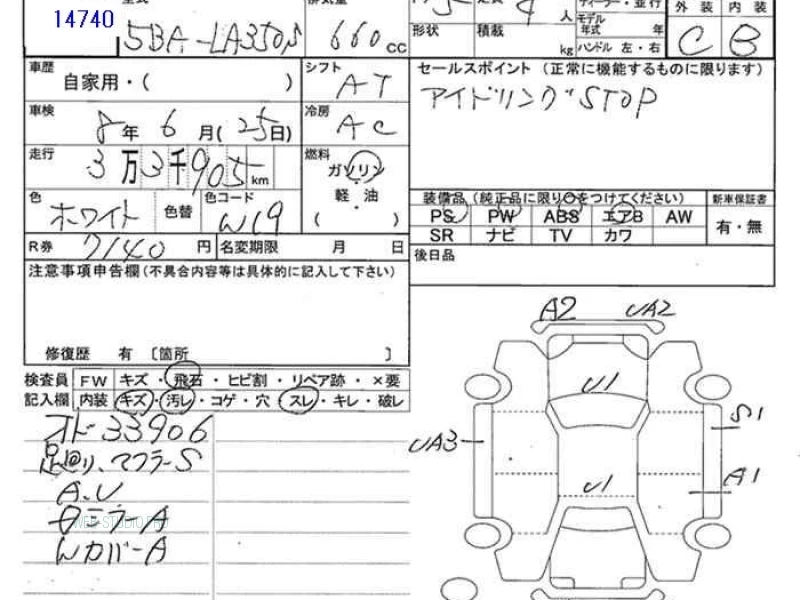 14740
5BA-LA350S
660 cc
4 人
ディーラー・並行
モデル年式 年
ハンドル 左・右
形状
積載 kg
外装 内装
C B
車歴 自家用・( )
シフト AT
車検 8年6月(25日)
冷房 AC
走行 3万3千905km
燃料 ガソリン
軽・油
( ・ )
色 ホワイト
色替
色コード W19
R券 7140円
名変期限 月 日
セールスポイント (正常に機能するものに限ります)
アイドリングSTOP
装備品 (純正品に限り○をつけてください)
新車保証書
PS PW ABS エアB AW
有・無
SR ナビ TV カワ
後日品
注意事項申告欄(不具合内容等は具体的に記入して下さい)
修復歴 有 〔箇所 〕
検査員記入欄
FW キズ・飛石・ヒビ割・リペア跡・×要
内装 キズ・汚レ・コゲ・穴・スレ・キレ・破レ
オドー33906
足回り、マフラーS
A.U
WEB-STUDIO.PRO
ミラーA
WカバーA
A2 UA2
U1
UA3
S1
U1
A1